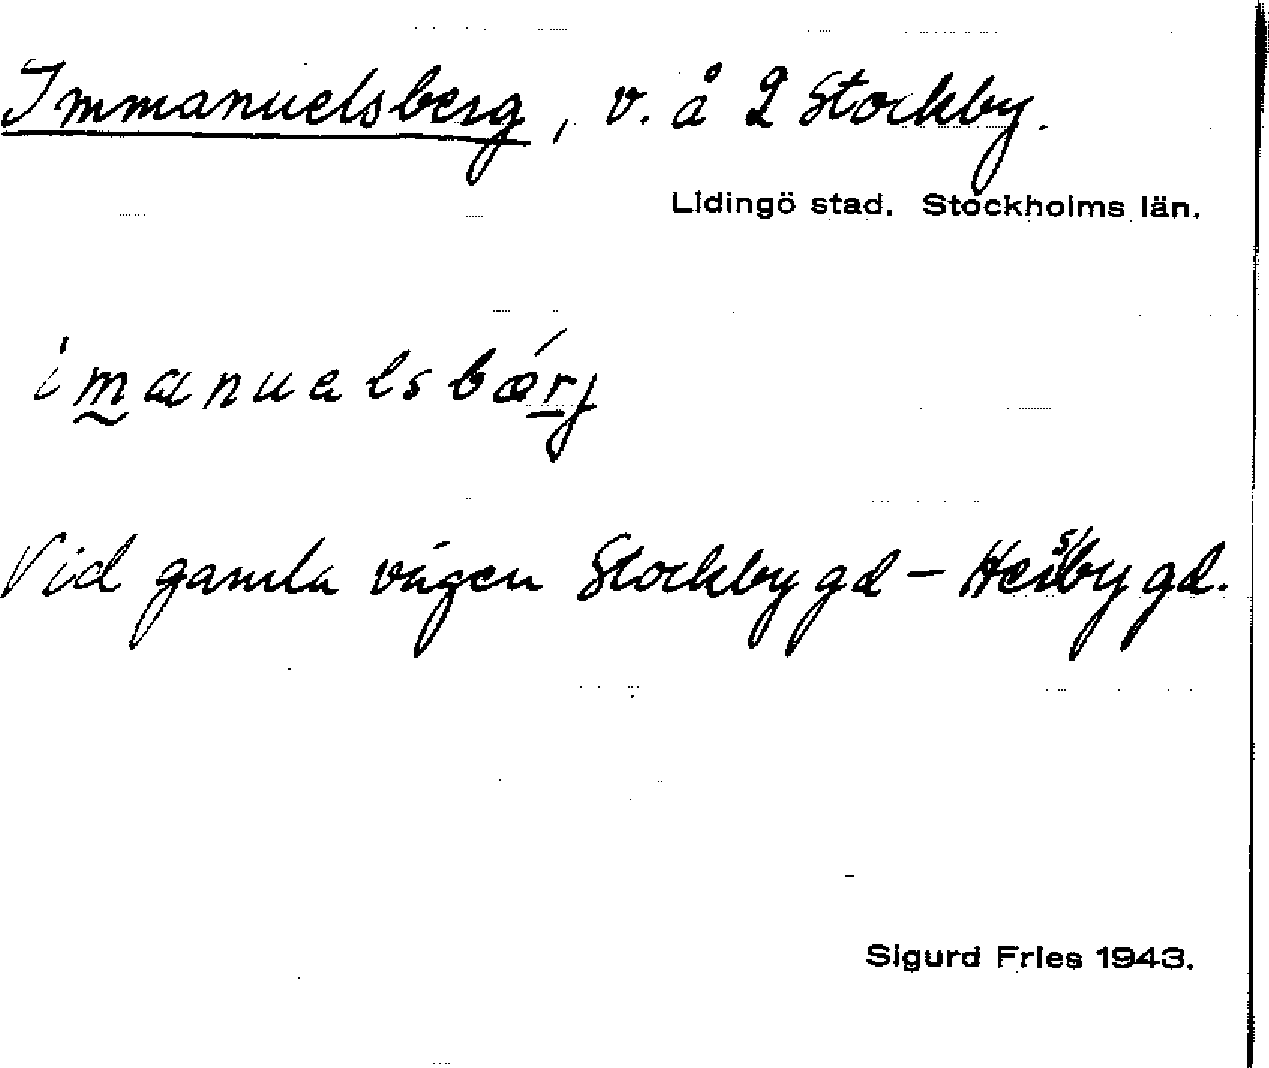 Immanuelsberg, v. å 2 Stockby.
Lidingö stad. Stockholms län.
imanuelsbærj
Vid gamla vägen Stockby gd – Hersby gd.
Sigurd Fries 1943.